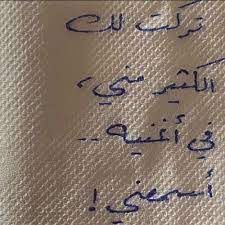 تركت لك
الكثير مني،
في أغنيه..
أسمعني!